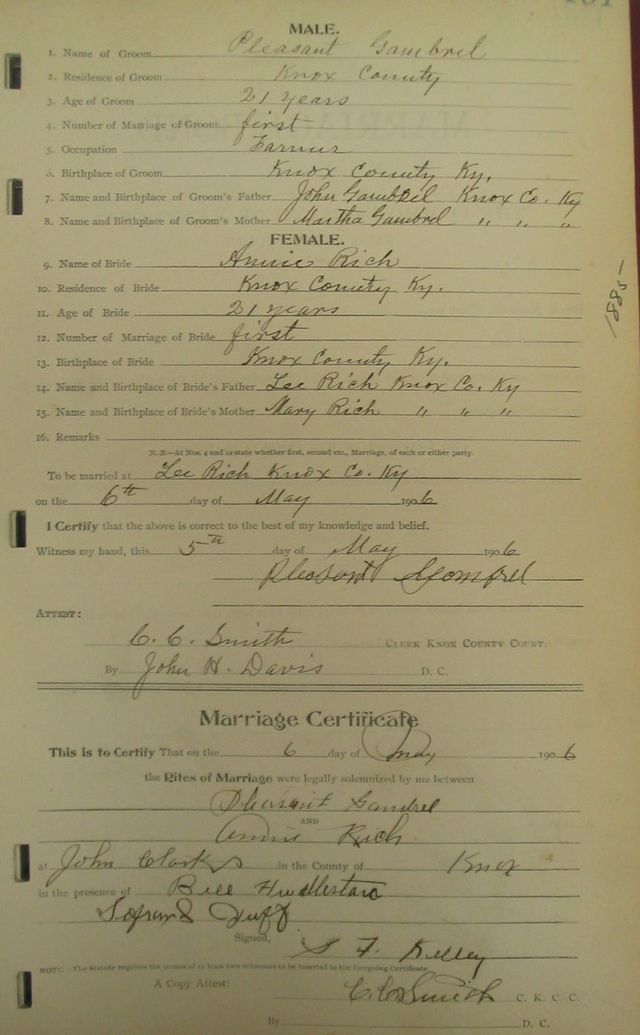 MALE.
1. Name of Groom Pleasant Gambrel
2. Residence of Groom Knox County
3. Age of Groom 21 years
4. Number of Marriage of Groom first
5. Occupation Farmer
6. Birthplace of Groom Knox County Ky.
7. Name and Birthplace of Groom's Father John Gambrel Knox Co. Ky
8. Name and Birthplace of Groom's Mother Martha Gambrel " " "
FEMALE.
9. Name of Bride Annie Rich
10. Residence of Bride Knox County Ky.
11. Age of Bride 21 years
12. Number of Marriage of Bride first
13. Birthplace of Bride Knox County Ky.
1885-
14. Name and Birthplace of Bride's Father Lee Rich Knox Co. Ky
15. Name and Birthplace of Bride's Mother Mary Rich " " "
16. Remarks
N. B.—At Nos. 4 and 12 state whether first, second etc., Marriage, of each or either party.
To be married at Lee Rich Knox Co. Ky
on the 6th day of May 1906
I Certify that the above is correct to the best of my knowledge and belief.
Witness my hand, this 5th day of May 1906
Pleasant Gambrel
ATTEST:
C. C. Smith CLERK KNOX COUNTY COURT.
By John H. Davis D. C.
Marriage Certificate
This is to Certify That on the 6 day of May 1906
the Rites of Marriage were legally solemnized by me between
Pleasant Gambrel
AND
Annie Rich
at John Clarks in the County of Knox
in the presence of Bill
Signed, S F Kelley
NOTE:—The Statute requires the names of at least two witnesses to be inserted in the foregoing Certificate.
A Copy Attest: C. C. Smith C. K. C. C.
By D. C.